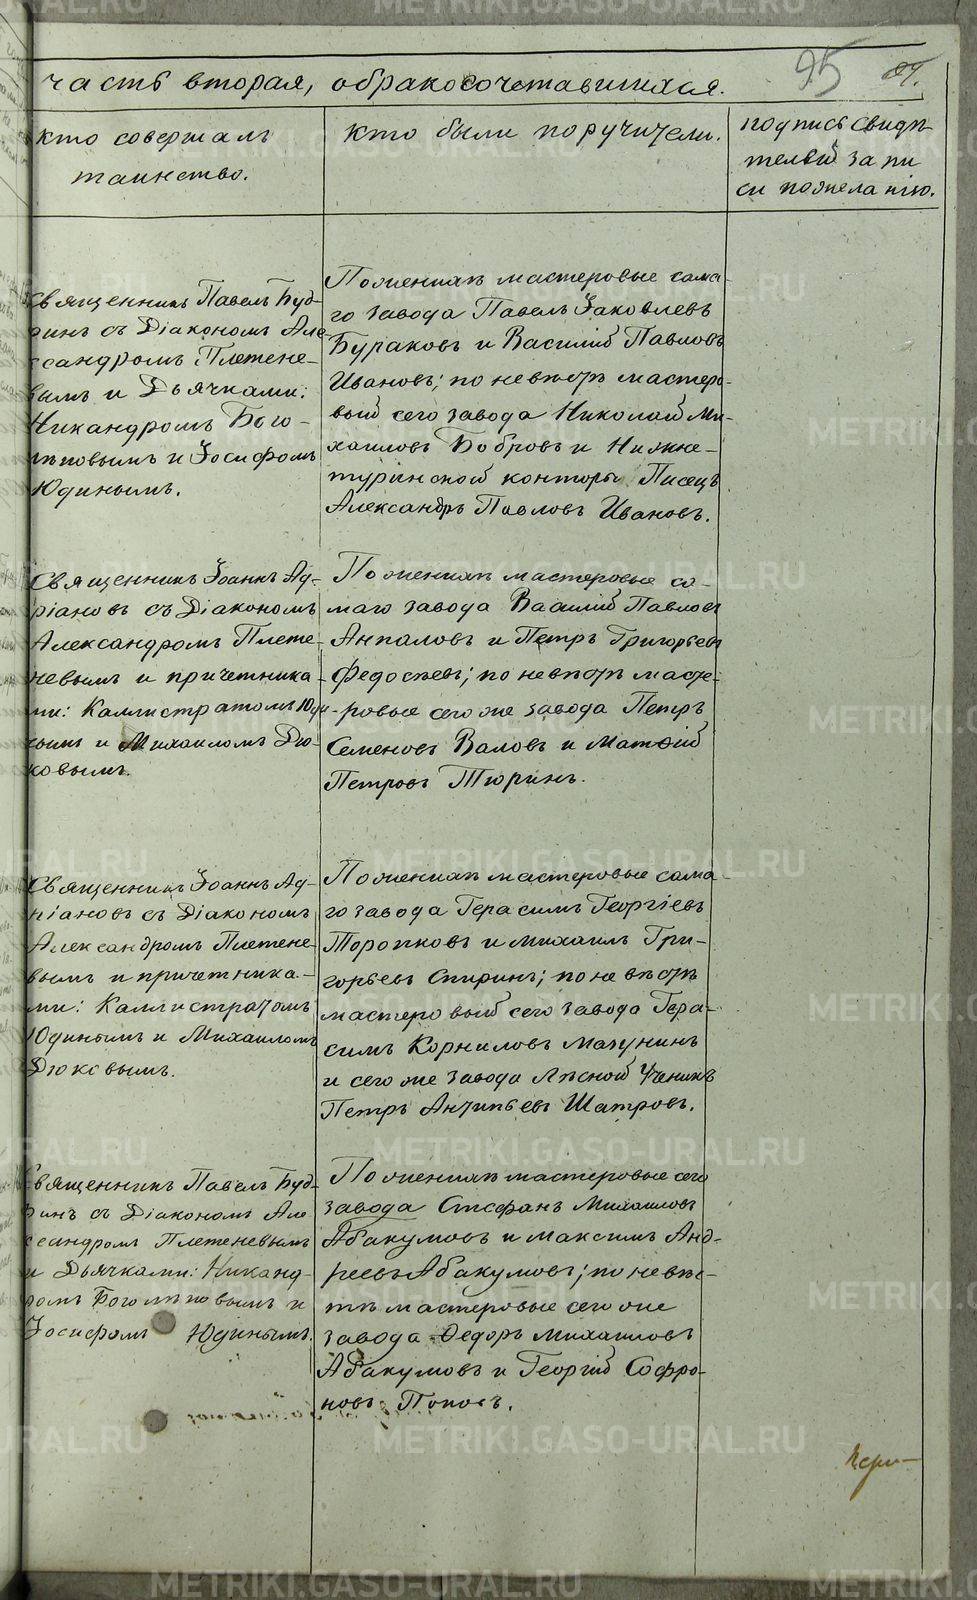 часть вторая, о бракосочетавшихся.
95
кто совершалъ
таинство.
кто были поручители.
подпись свидѣ-
телей запи
си по желанію.
Священникъ Павелъ Буд-
ринъ съ Діакономъ Але
ксандромъ Плетене-
вымъ и Дьячками:
Никандромъ Бого-
лѣповымъ и Іосифомъ
Юдинымъ.
По женихѣ мастеровые сама-
го завода Павелъ Іаковлевъ
Бураковъ и Василій Павловъ
Ивановъ; по невѣстѣ мастеро-
вый сего завода Николай Ми-
хаиловъ Бобровъ и Нижне-
туринской конторы Писецъ
Александръ Павловъ Ивановъ.
Священникъ Іоаннъ Ад-
ріановъ съ Діакономъ
Александромъ Плете-
невымъ и причетника-
ми: Каллистратомъ Юди-
нымъ и Михаиломъ Дю-
ковымъ.
По женихѣ мастеровые са-
маго завода Василій Павловъ
Анпаловъ и Петръ Григорьевъ
Федосѣевъ; по невѣстѣ масте-
ровые сего же завода Петръ
Семеновъ Валовъ и Матѳій
Петровъ Тюринъ.
Священникъ Іоаннъ Ад-
ріановъ съ Діакономъ
Александромъ Плетене-
вымъ и причетника-
ми: Каллистратомъ
Юдинымъ и Михаиломъ
Дюковымъ.
По женихѣ мастеровые сама-
го завода Герасимъ Георгіевъ
Торопковъ и Михаилъ Гри-
горьевъ Спиринъ; по невѣстѣ
мастеровый сего завода Гера-
симъ Корниловъ Мазунинъ
и сего же завода Лѣсной Ученикъ
Петръ Антипьевъ Шатровъ.
Священникъ Павелъ Буд-
ринъ съ Діакономъ Але
ксандромъ Плетеневымъ
и Дьячками: Никанд-
ромъ Боголѣповымъ и
Іосифомъ Юдинымъ.
По женихѣ мастеровые сего
завода Стефанъ Михаиловъ
Абакумовъ и Максимъ Анд-
реевъ Абакумовъ; по невѣс-
тѣ мастеровые сего же
завода Ѳедоръ Михаиловъ
Абакумовъ и Георгій Софро-
новъ Поповъ.
METRIKI.GASO-URAL.RU